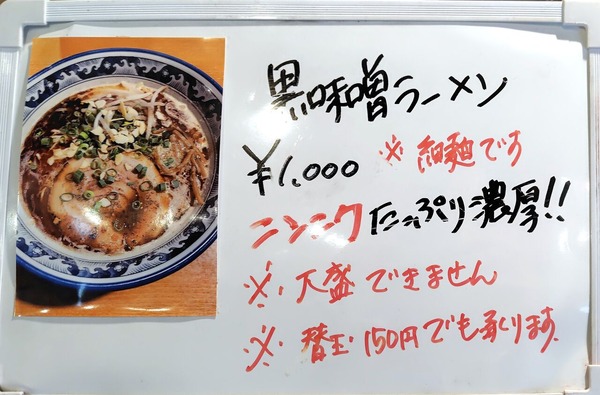 黒味噌ラーメン
¥1,000 ※細麺です
ニンニクたっぷり濃厚!!
※大盛できません
※替玉150円でも承ります